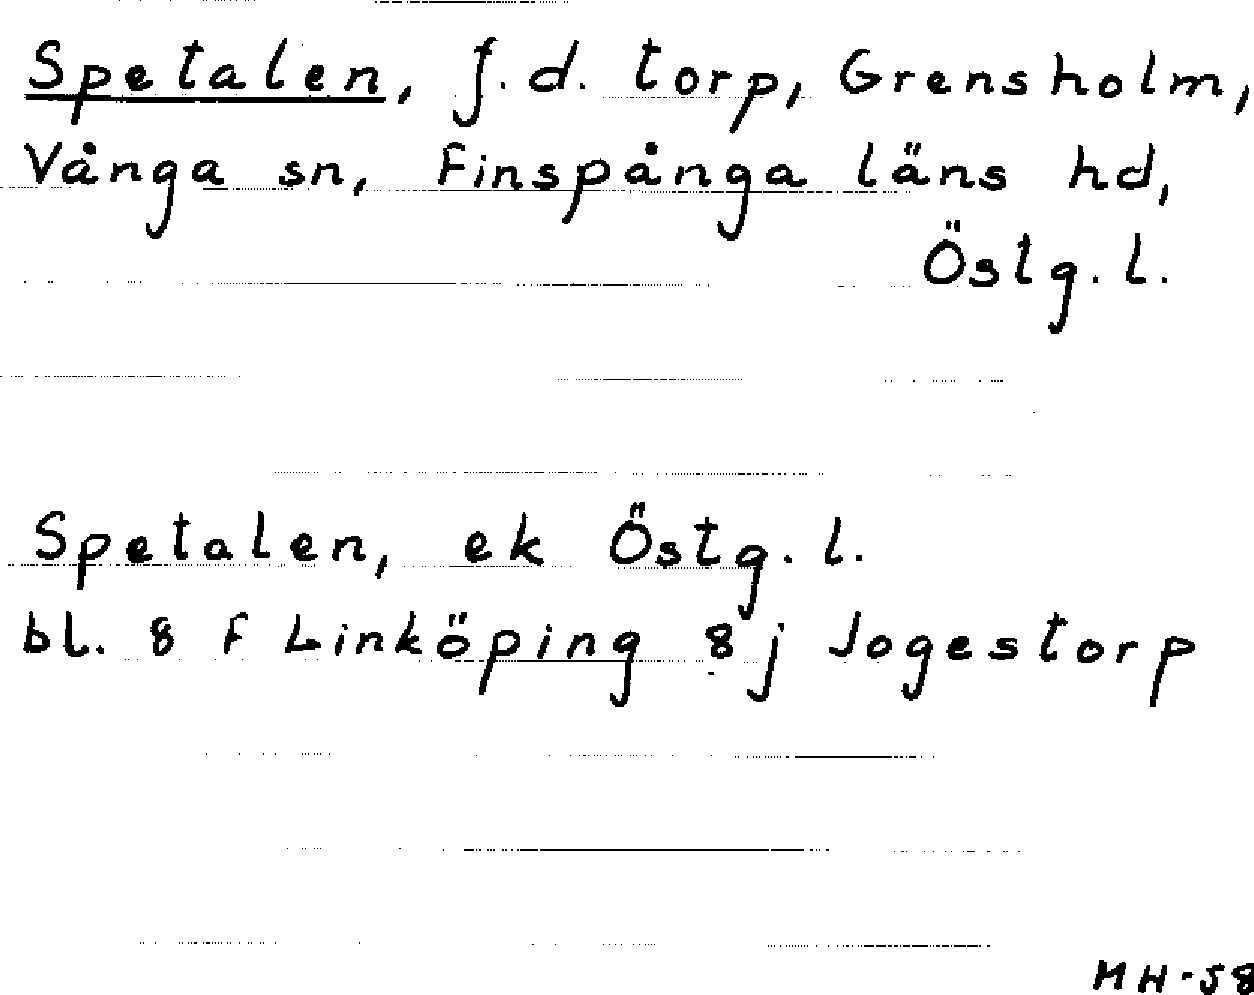 Spetalen, f.d. torp, Grensholm,
Vånga sn, Finspånga läns hd,
Östg. l.
Spetalen, ek Östg. l.
bl. 8 F Linköping 8j Jogestorp
MH-58